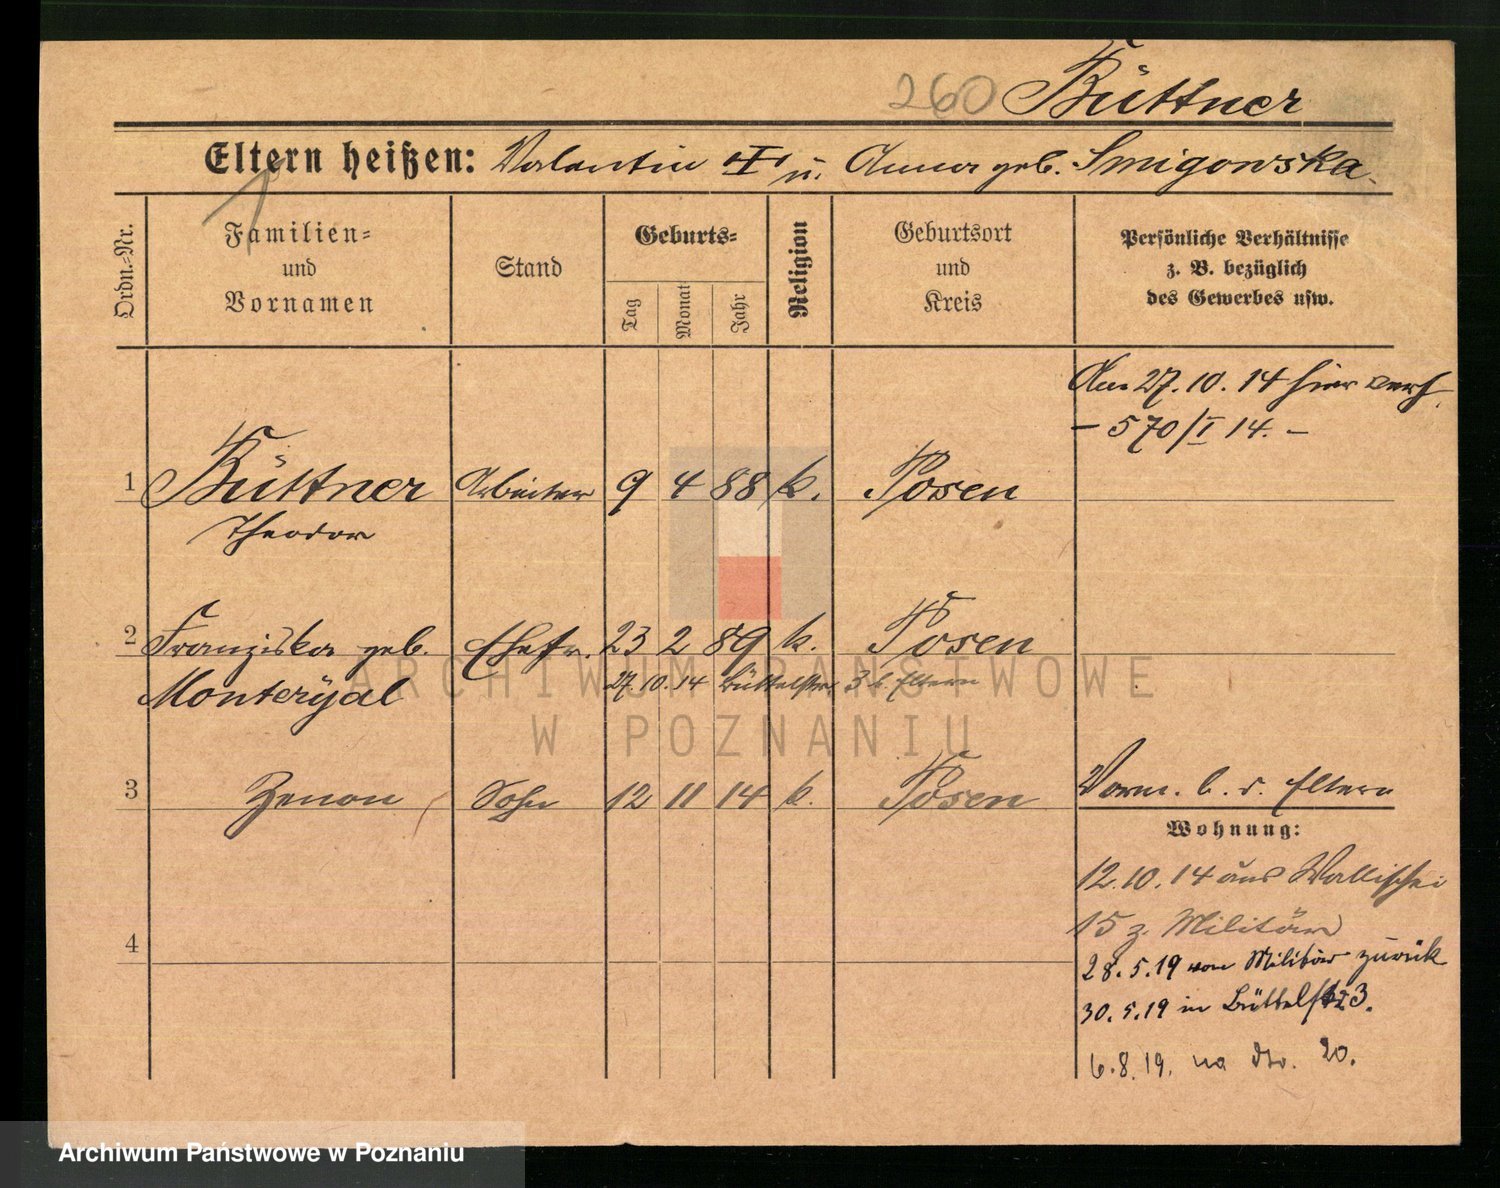 260 Büttner
Eltern heißen: Valentin u. Anna geb. Smigowska
Ordn.=Nr.
Familien=
und
Vornamen
Stand
Geburts=
Tag
Monat
Jahr
Religion
Geburtsort
und
Kreis
Persönliche Verhältnisse
z. B. bezüglich
des Gewerbes usw.
Am 27.10.14 hier verh.
– 570/I 14. –
1 Büttner Arbeiter 9 4 88 k. Posen
Theodor
2 Franziska geb. Ehefr. 23 2 89 k. Posen
Monteryal 27.10.14 Büttelstr. 3 b. Eltern
3 Zenon Sohn 12 11 14 k. Posen
Vorm. b. d. Eltern
Wohnung:
12.10.14 aus Wallischei
15 z. Militär
4
28.5.19 vom Militär zurück
30.5.19 in Büttelstr 3.
6.8.19. 20.
ARCHIWUM PAŃSTWOWE
W POZNANIU
Archiwum Państwowe w Poznaniu